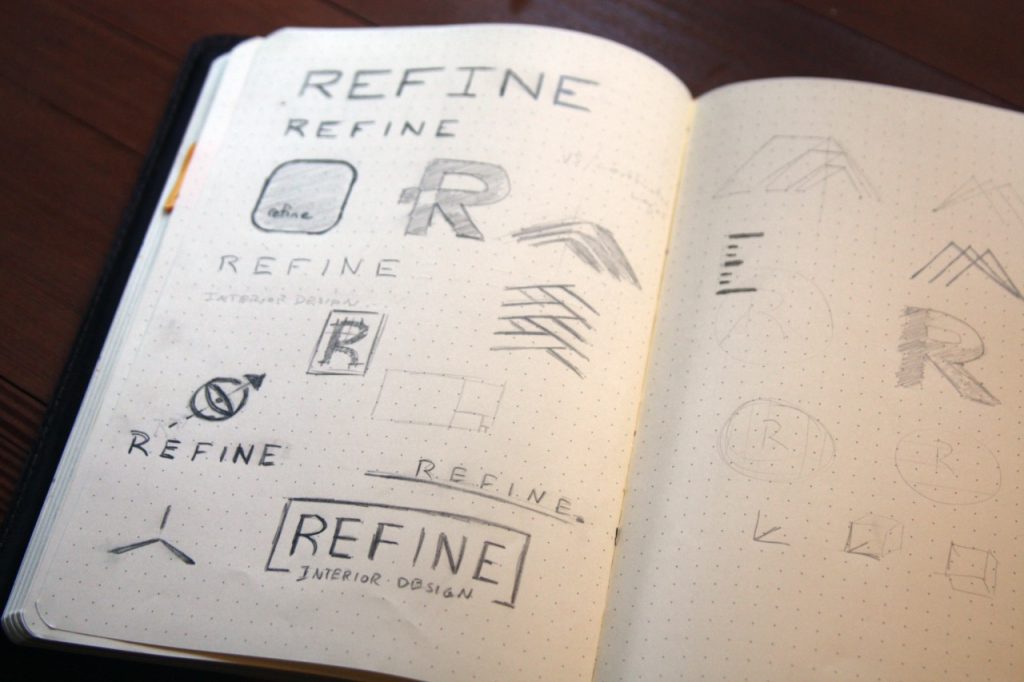 REFINE
REFINE
refine
R
REFINE
INTERIOR DESIGN
R
REFINE
REFINE
REFINE
INTERIOR DESIGN
R
R
R